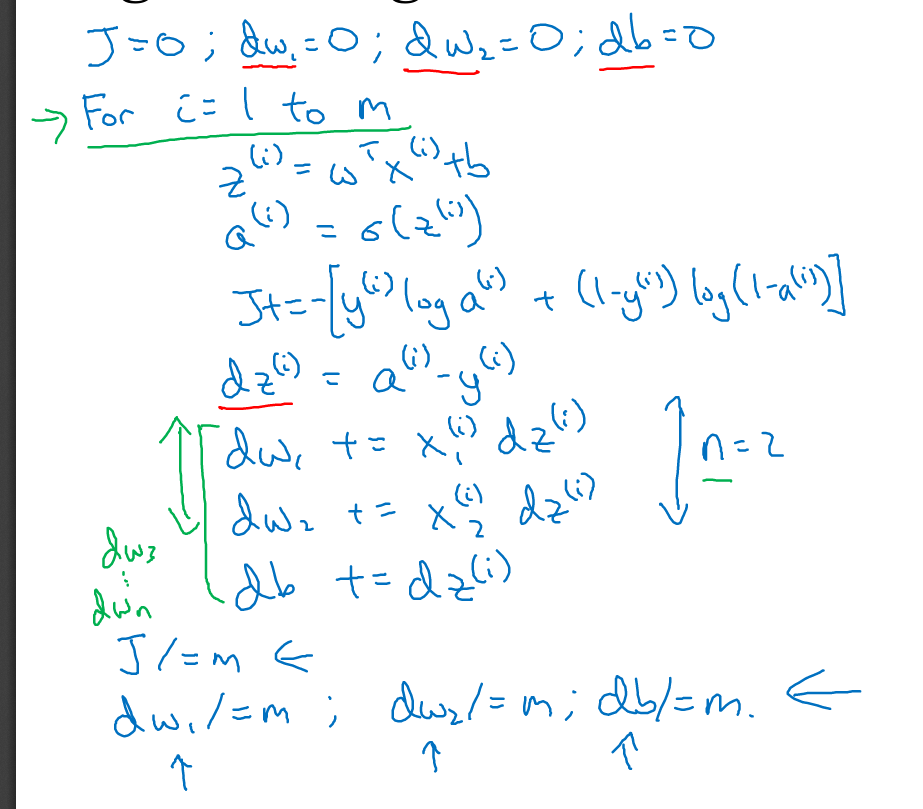 J=0; dw₁=0; dw₂=0; db=0
→ For i=1 to m
z⁽ⁱ⁾ = wᵀx⁽ⁱ⁾+b
a⁽ⁱ⁾ = σ(z⁽ⁱ⁾)
J+=-[y⁽ⁱ⁾ log a⁽ⁱ⁾ + (1-y⁽ⁱ⁾) log(1-a⁽ⁱ⁾)]
dz⁽ⁱ⁾ = a⁽ⁱ⁾-y⁽ⁱ⁾
dw₁ += x₁⁽ⁱ⁾ dz⁽ⁱ⁾
n=2
dw₂ += x₂⁽ⁱ⁾ dz⁽ⁱ⁾
db += dz⁽ⁱ⁾
dw₃
⋮
dwₙ
J/=m ←
dw₁/=m; dw₂/=m; db/=m. ←
↑ ↑ ↑